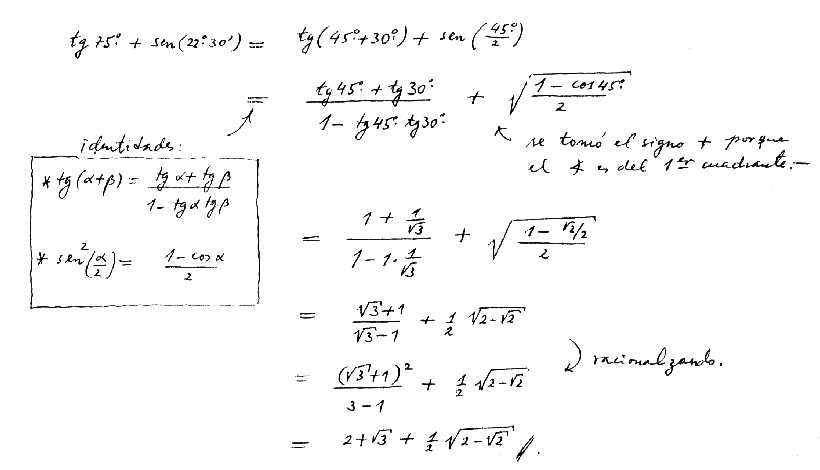 tg 75° + sen(22° 30') = tg(45°+30°) + sen(45°/2)
= (tg 45° + tg 30°)/(1 - tg 45° tg 30°) + √((1 - cos 45°)/2)
se tomó el signo + porque
el ∢ es del 1er cuadrante.-
identidades:
* tg(α+β) = (tg α + tg β)/(1 - tg α tg β)
* sen²(α/2) = (1 - cos α)/2
= (1 + 1/√3)/(1 - 1·1/√3) + √((1 - √2/2)/2)
= (√3+1)/(√3-1) + 1/2 √(2-√2)
racionalizando.
= (√3+1)²/(3-1) + 1/2 √(2-√2)
= 2+√3 + 1/2 √(2-√2)